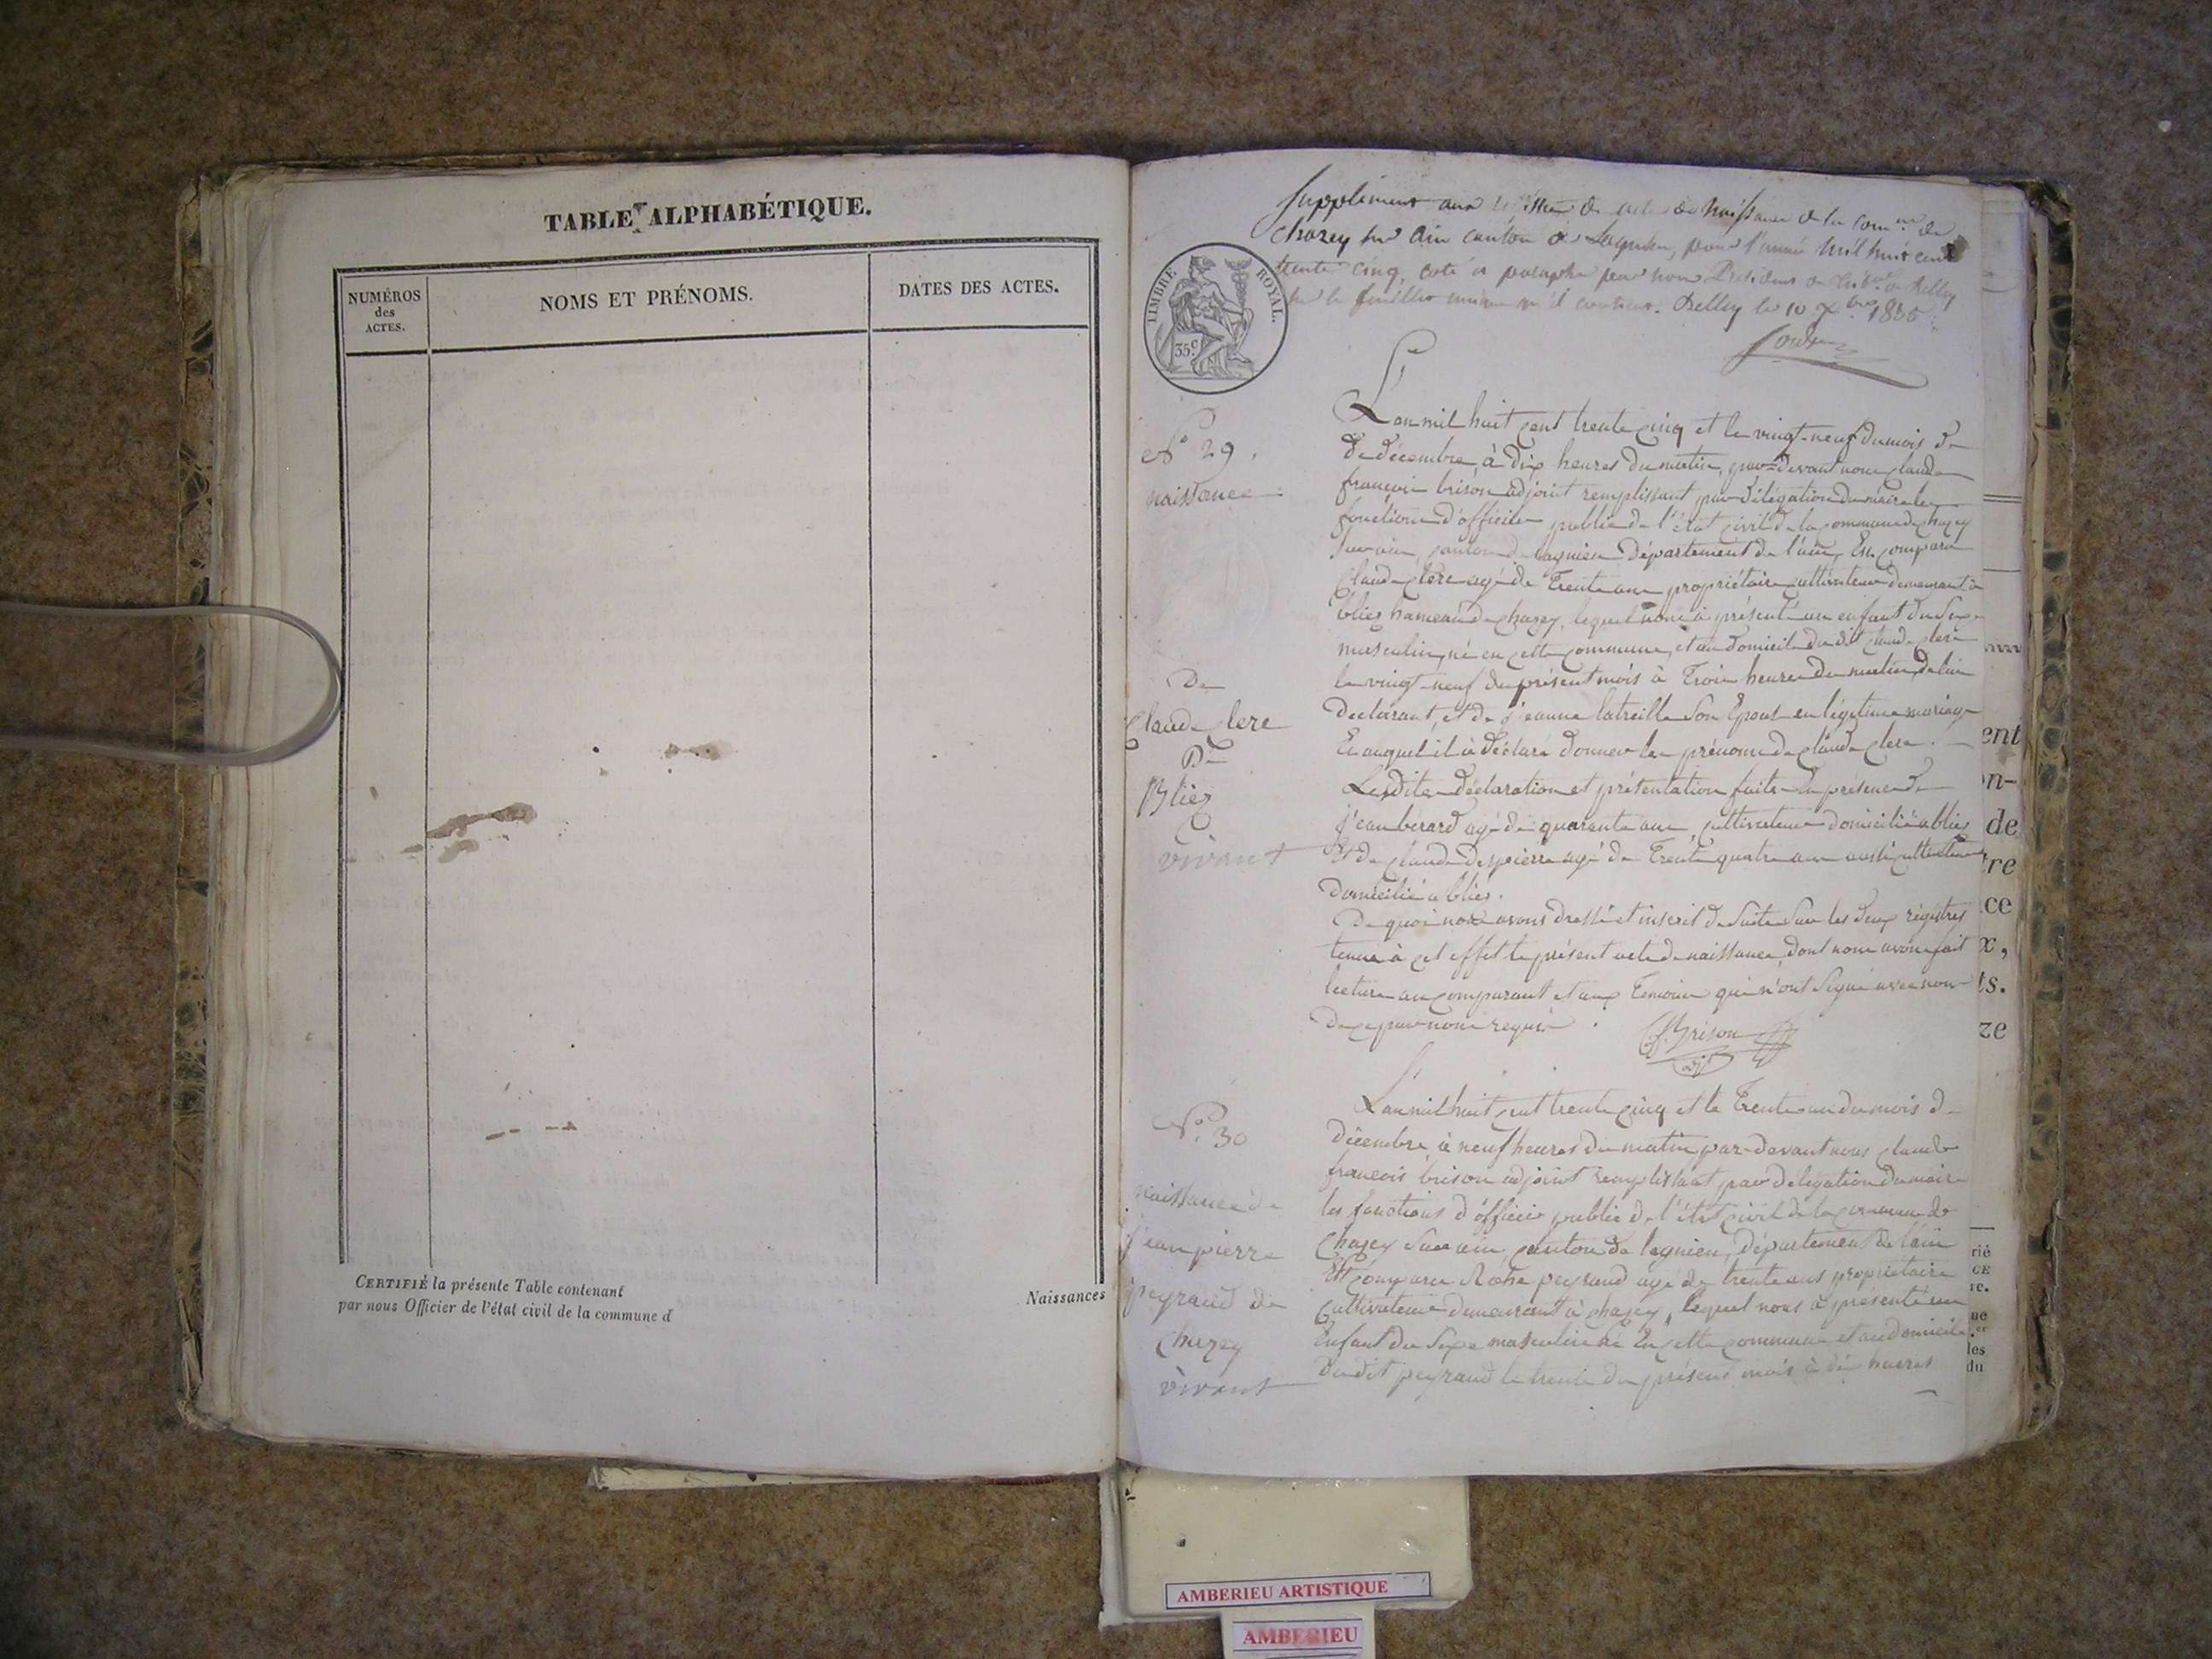 TABLE ALPHABÉTIQUE.
NUMÉROS
des
ACTES.
NOMS ET PRÉNOMS.
DATES DES ACTES.
CERTIFIÉ la présente Table contenant
par nous Officier de l'état civil de la commune d
Naissances
Supplément aux de actes de Naissance de la com.ne de
Chazey sur Ain canton de Lagnieu, pour l'année mil huit cent
trente cinq, coté et paraphé par nous Président de Belley
sur le feuillet unique qu'il contient. Belley le 10 Xbre 1835
TIMBRE ROYAL.
35c
L'an mil huit cent trente cinq et le vingt-neuf du mois de
de décembre, à dix heures du matin, par-devant nous claude
françois brison adjoint remplissant par délégation du maire les
fonctions d'officier public de l'état civil de la commune de chazey
sur ain, canton de lagnieu Département de l'ain, Est comparu
Claude clere agé de Trente ans propriétaire cultivateur demeurant à
bliez hameau de chazey, lequel nous à présenté un enfant du Sexe
masculin, né en cette commune, et au domicile du dit claude clere
le vingt-neuf du présent mois à Trois heures du matin, de lui
Déclarant, et de jeanne latreille Son Epouse en légitime mariage
Et auquel il à déclaré donner les prénoms de claude clere.
Lesdites déclaration et présentation faites En présence de
jean bérard agé de quarante ans, cultivateur domicilié a bliez
Et de claude Despierre agé de Trente quatre ans aussi cultivateur
domicilié a bliez.
De quoi nous avons dressé et inscrit de Suite Sur les deux régistres
tenus à cet effet le présent acte de naissance, dont nous avons fait
lecture au comparant et aux Temoins qui n'ont Signé avec nous
De ce par nous requis.
C.f. Brison
adjt
N° 29.
naissance
De
Claude Clere
De
Bliez
vivant
L'an mil huit cent trente cinq et le Trente un du mois de
Décembre à neuf heures du matin, par-devant nous claude
francois brison adjoint remplissant par délégation du maire
les fonctions d'officier public de l'état civil de la commune de
Chazey Sur ain, canton de lagnieu, département de l'ain
Est comparu Roche peyraud agé de trente ans propriétaire
Cultivateur demeurant à chazey, lequel nous à présenté un
Enfant du Sexe masculin né En cette commune et au domicile
Du dit peyraud le trente du présent mois à dix heures
N°. 30
naissance de
jean pierre
peyraud de
Chazey
vivant
ent
on-
de
tre
ce
x,
ts.
ze
rié
CE
re.
ne
les
du
AMBERIEU ARTISTIQUE
AMBERIEU